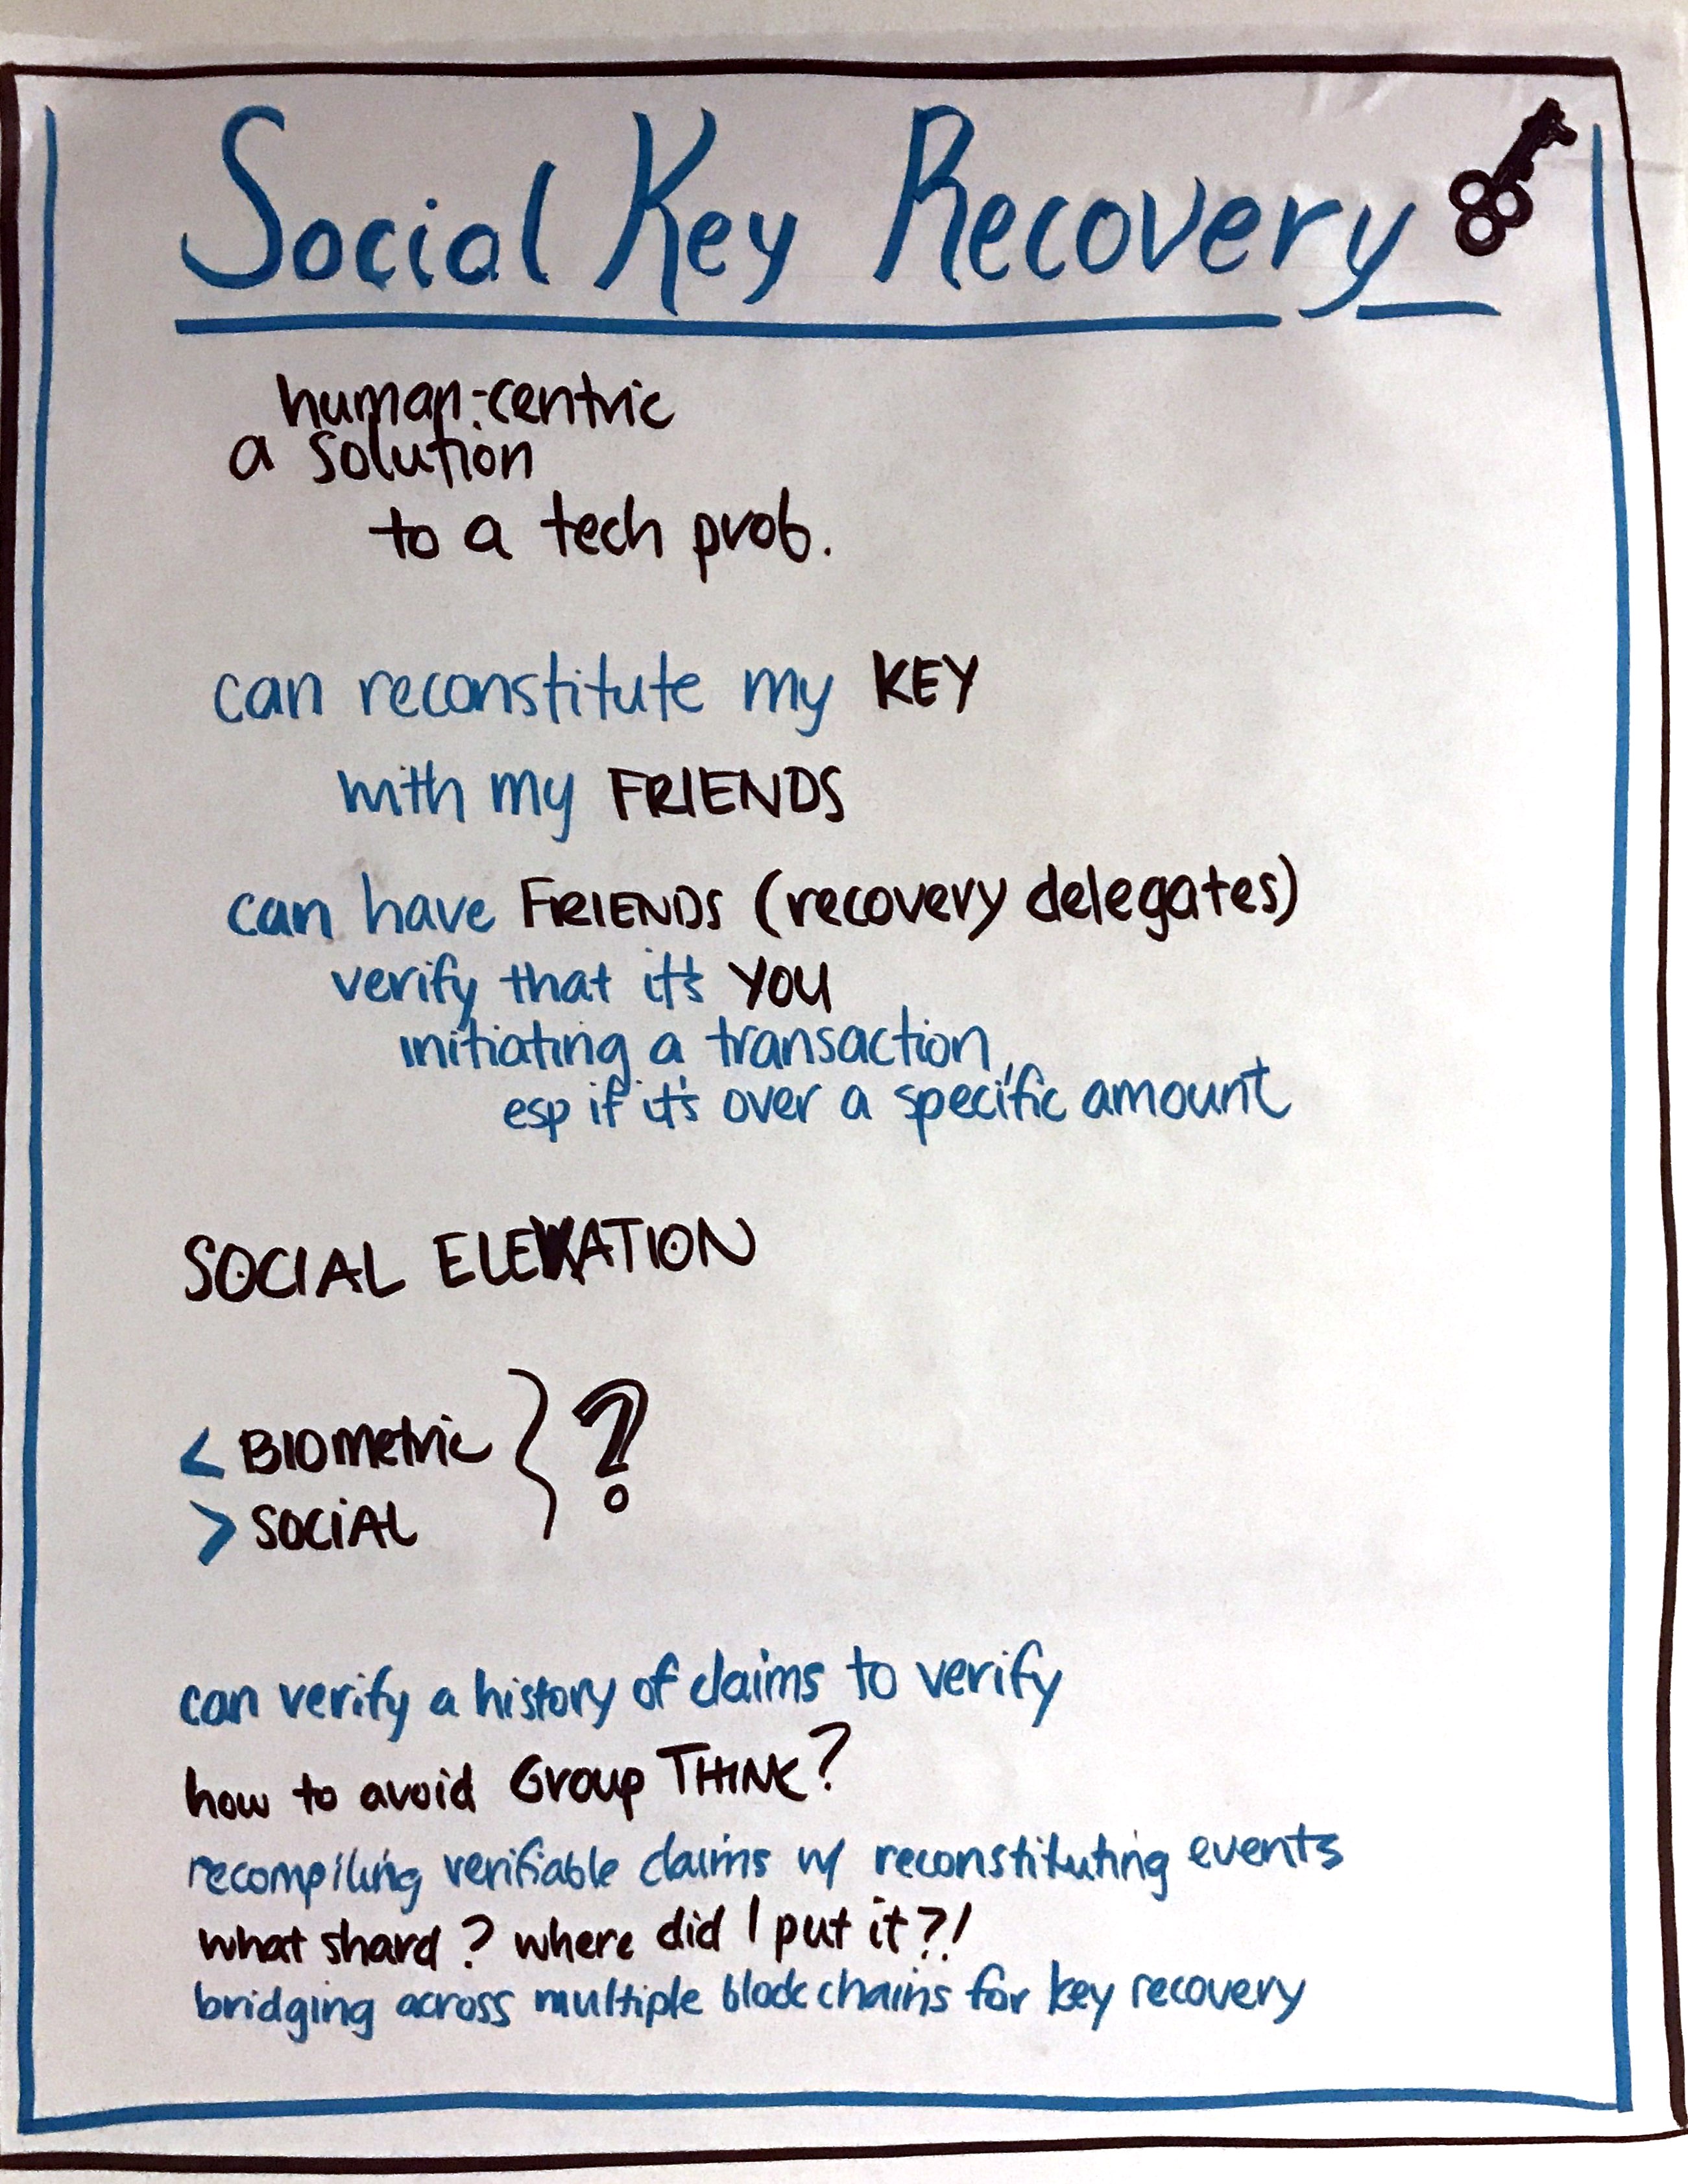 Social Key Recovery
human-centric
a solution
to a tech prob.
can reconstitute my KEY
with my FRIENDS
can have FRIENDS (recovery delegates)
verify that it's YOU
initiating a transaction,
esp if it's over a specific amount
SOCIAL ELEVATION
< BIOMetric } ?
> SOCIAL
can verify a history of claims to verify
how to avoid Group THINK?
recompiling verifiable claims w/ reconstituting events
what shard? where did I put it?!
bridging across multiple block chains for key recovery